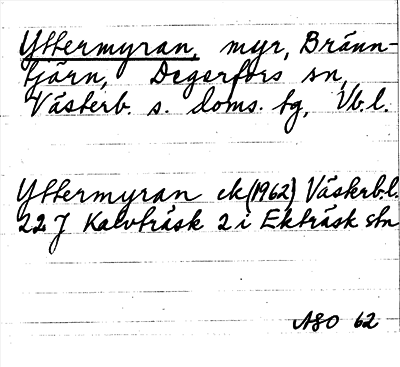 Yttermyran, myr, Bränn-
tjärn, Degerfors sn,
Västerb. s. doms. tg, Vb. l.
Yttermyran ek (1962) Västerb. l.
22 J Kalvträsk 2 i Ekträsk stn
ASO 62